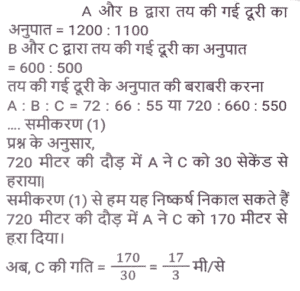 A और B द्वारा तय की गई दूरी का
अनुपात = 1200 : 1100
B और C द्वारा तय की गई दूरी का अनुपात
= 600 : 500
तय की गई दूरी के अनुपात की बराबरी करना
A : B : C = 72 : 66 : 55 या 720 : 660 : 550
.... समीकरण (1)
प्रश्न के अनुसार,
720 मीटर की दौड़ में A ने C को 30 सेकेंड से
हराया|
समीकरण (1) से हम यह निष्कर्ष निकाल सकते हैं
720 मीटर की दौड़ में A ने C को 170 मीटर से
हरा दिया।
अब, C की गति = 170/30 = 17/3 मी/से